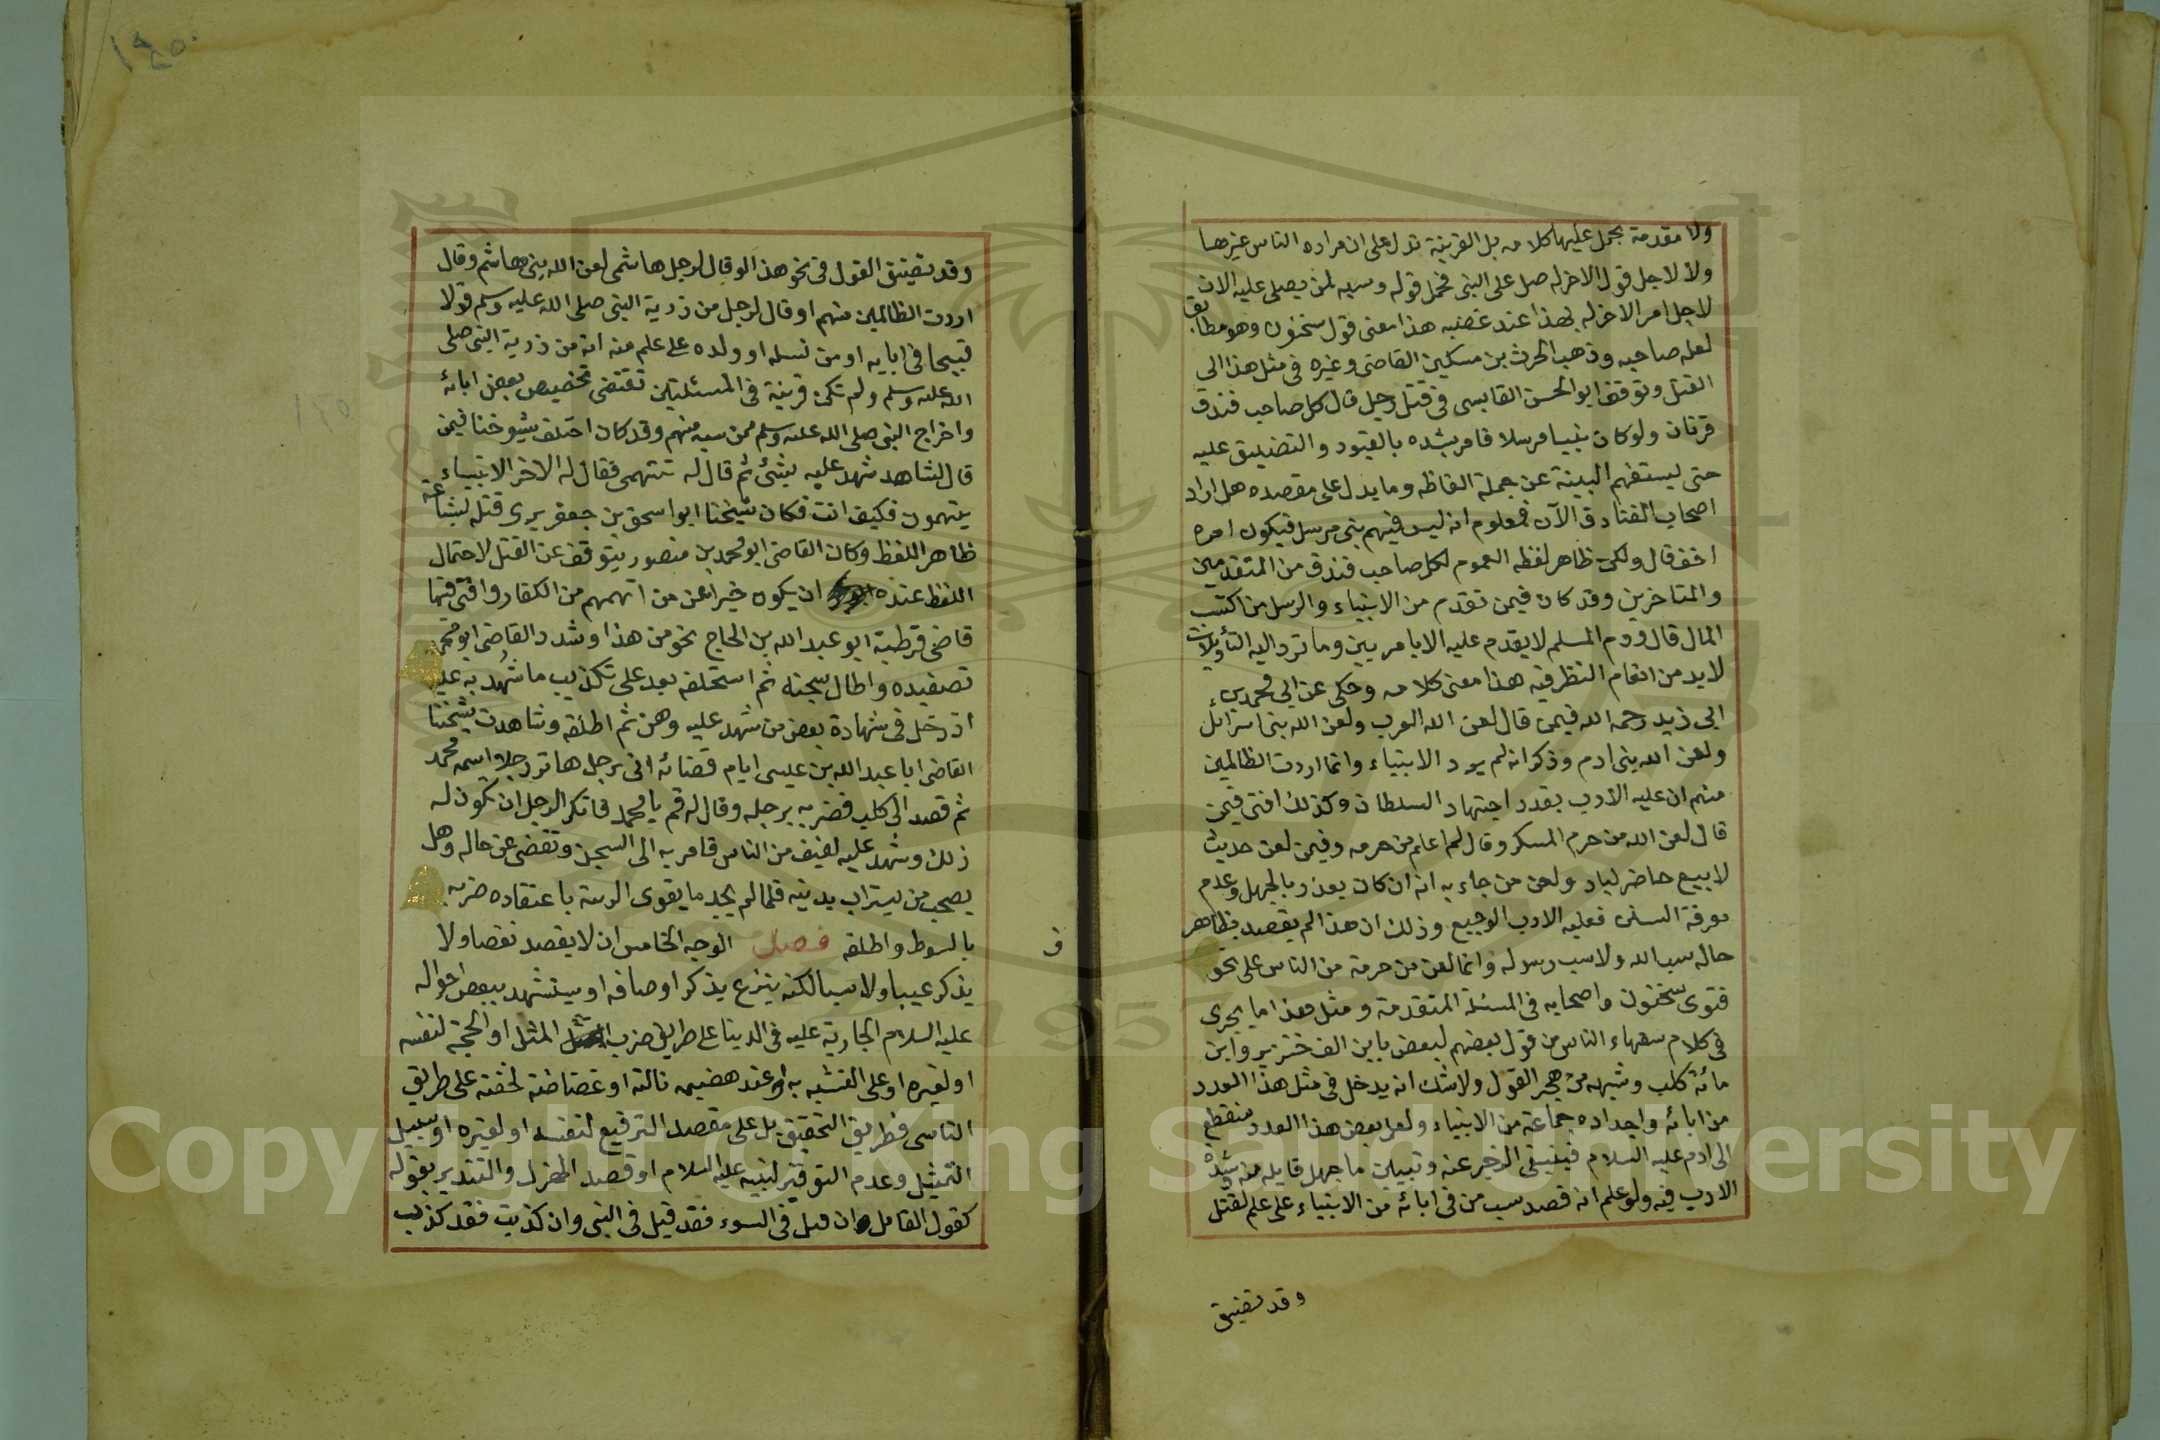 ولا مقدمة يحمل عليها كلامه بل القرينة تدل على ان مراده الناس غيرها
ولا لاجل قول الاخر له صل على النبى فحمل قوله وسبه لمن يصلى عليه الان
لاجل امر الاخر له بهذا عند غضبه هذا معنى قول سحنون وهو مطابق
لعله صاحبه وذهب الحرث بن مسكين القاضى وغيره فى مثل هذا الى
القتل وتوقف ابو الحسن القابسى فى قتل رجل قال كل صاحب فندق
قرنان ولو كان نبيا مرسلا فامر بشده بالقيود والتضييق عليه
حتى يستفهم البينة عن جملة الفاظه وما يدل على مقصده هل اراد
اصحاب الفنادق الآن فمعلوم انه ليس فيهم نبى مرسل فيكون امره
اخف قال ولكن ظاهر لفظه العموم لكل صاحب فندق من المتقدمين
والمتاخرين وقد كان فيمن تقدم من الانبياء والرسل من اكتسب
المال قال ودم المسلم لا يقدم عليه الا بامر بين وما ترد اليه التأويلات
لابد من انعام النظر فيه هذا معنى كلامه وحكى عن ابى محمد بن
ابى زيد رحمه الله فيمن قال لعن الله العرب ولعن الله بنى اسرائل
ولعن الله بنى ادم وذكر انه لم يرد الانبياء وانما اردت الظالمين
منهم ان عليه الادب بقدر اجتهاد السلطان وكذلك افتى فيمن
قال لعن الله من حرم المسكر وقال لم اعلم من حرمه وفيمن لعن حديث
لا يبيع حاضر لباد ولعن من جاء به انه ان كان يعذر بالجهل وعدم
معرفة السنن فعليه الادب الوجيع وذلك ان هذا لم يقصد بظاهر
حاله سب الله ولا سب رسوله وانما لعن من حرمه من الناس على نحو
فتوى سحنون واصحابه فى المسئلة المتقدمة ومثل هذا ما يجرى
فى كلام سفهاء الناس من قول بعضهم لبعض يا بن الف خنزير وابن
مائة كلب وشبهه من هجر القول ولا شك انه يدخل فى مثل هذا العدد
من ابائه واجداده جماعة من الانبياء ولعل بعض هذا العدد منقطع
الى ادم عليه السلام فينبغى الزجر عنه وتبيين ما جهل قايله منه وشدة
الادب فيه ولو علم انه قصد سب من فى ابائه من الانبياء على علم لقتل
وقد تضيق
١٤٥
وقد تضيق القول فى نحو هذا لو قال لرجل هاشمى لعن الله بنى هاشم وقال
اردت الظالمين منهم او قال لرجل من ذرية النبى صلى الله عليه وسلم قولا
قبيحا فى ابايه او من نسله او ولده على علم منه انه من ذرية النبى صلى
الله عليه وسلم ولم تكن قرينة فى المسئلتين تقتضى تخصيص بعض ابائه
واخراج النبى صلى الله عليه وسلم ممن سبه منهم وقد كان اختلف شيوخنا فيمن
قال لشاهد شهد عليه بشئ ثم قال له تتهمى فقال له الاخر الانبياء
يتهمون فكيف انت فكان شيخنا ابو اسحق بن جعفر يرى قتله لبشاعة
ظاهر اللفظ وكان القاضى ابو محمد بن منصور يتوقف عن القتل لاحتمال
اللفظ عنده ان يكون خبرا عن من اتهمهم من الكفار وافتى فيها
قاضى قرطبة ابو عبد الله بن الحاج بنحو من هذا وشدد القاضى ابو محمد
تصفيده واطال سجنه ثم استحلفه بعد على تكذيب ما شهد به عليه
اذ دخل فى شهادة بعض من شهد عليه وهن ثم اطلقه وشاهدت شيخنا
القاضى ابا عبد الله بن عيسى ايام قضائه اتى برجل هاتر رجلا اسمه محمد
ثم قصد الى كلب فضربه برجله وقال له قم يا محمد فانكر الرجل ان يكون له
ذلك وشهد عليه لفيف من الناس فامر به الى السجن وتقضى عن حاله وهل
يصحب من يستراب بدينه فلما لم يجد ما يقوى الريبة باعتقاده ضربه
بالسوط واطلقه فصل الوجه الخامس ان لا يقصد نقصا ولا
ف
يذكر عيبا ولا سبا لكنه ينزع بذكر اوصافه او يستشهد ببعض احواله
عليه السلام الجارية عليه فى الدنيا على طريق ضرب المثل او الحجة لنفسه
او لغيره او على التشبه به او عند هضيمه نالته او غضاضة لحقته على طريق
التاسى وطريق التحقيق بل على مقصد الترفيع لنفسه او لغيره او سبيل
التمثيل وعدم التوقير لنبيه عليه السلام او قصد الهزل والتندير بقوله
كقول القايل ان قيل فى السوء فقد قيل فى النبى وان كذبت فقد كذب
Copyright © King Saud University
195